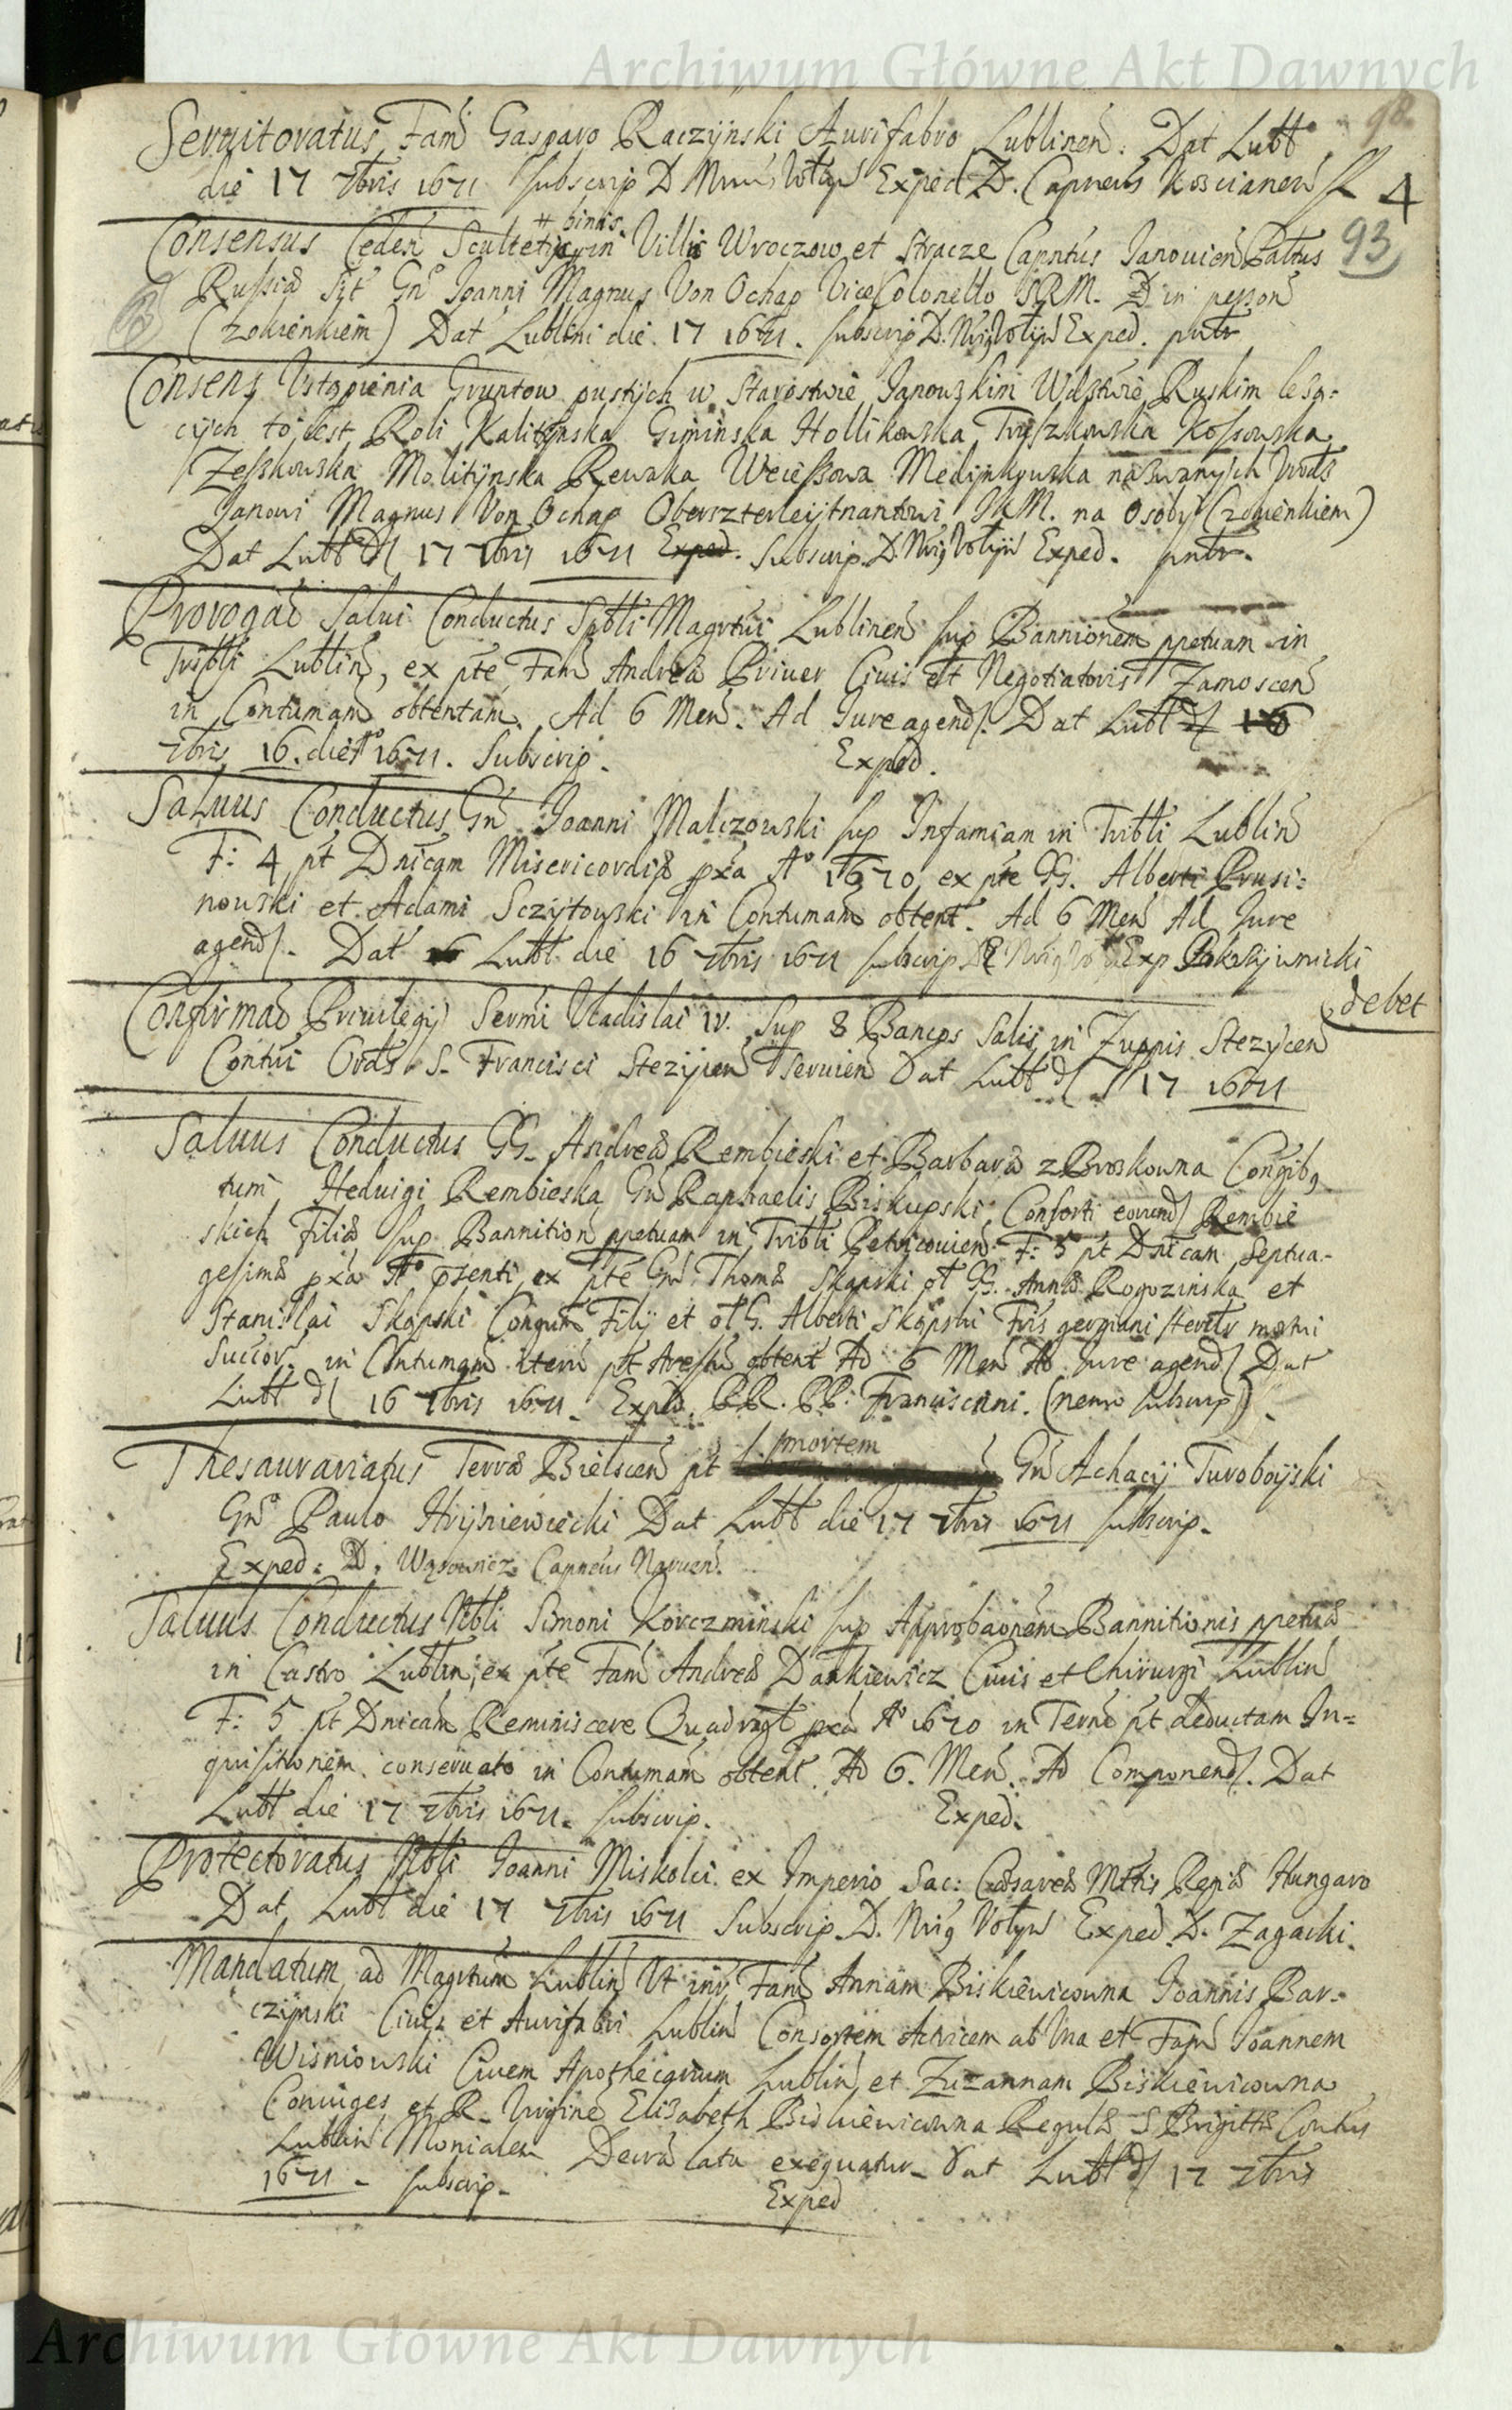 Archiwum Główne Akt Dawnych
98
Seruitoratus Fam Gasparo Raczÿnski Aurifabro Lublinen. Dat Lubt
die 17 7bris 1671 subscrip D Exped D. Capneus Koscianen
4
Consensus Ceden Scultetÿ in binis Villis Wroczow et stracze Capntus Janouien Paltus
93
Russiæ Gn Joanni Magnus Von Ochap ViceColonello SRM. in person
(zonienkiem) Dat Lublini die 17 1671. subscrip D. Exped. pntr
Consens Vstąpienia Gruntow pustÿch w Starostwie Janowskim Wdztwie Ruskim leżą-
cÿch to iest Roli Kalitÿnska Giminska Hollikowska Trÿszkowska Kossowska
Zeszkowska Molitÿnska Rewaka Weciessowa nazwanÿch
Janowi Magnus Von Ochap Oberszterleÿtnantowi JKM. na Osobÿ (zonienkiem)
Dat Lubt d 17 7bris 1671 Exped. Subscrip. D. Exped. pntr.
Prorogao Salui Conductus Sptli Magrtui Lublinen sup Bannionem ppetuam in
Tribli Lublin, ex pte Fam Andreæ Priuer Ciuis et Negotiatoris Zamoscen
in Contumam obtentam. Ad 6 Men. Ad Jure agend. Dat Lubt d 16
7bris 16. die 1671. Subscrip. Exped.
Saluus Conductus Gn Joanni Malczowski sup Infamiam in Tribli Lublin
F: 4 pt Dnicam Misericordiæ pxa Ao 1670 ex pte GG. Alberti Prusi:
nowski et Adami Sczÿtowski in Contumam obtent. Ad 6 Men Ad Jure
agend. Dat 16 Lubt die 16 7bris 1671 subscrip Exp
debet
Confirmao Priuilegÿ Sermi Vladislai IV. Sup 8 Bancos Salis in Zuppis Stezÿcen
Contui Ords S. Francisci Stezÿcen Seruien Dat Lubt d 17 1671
Saluus Conductus GG. Andreæ Rembieski et Barbaræ z Broskowna Congibq
tum Heduigi Rembieska Gn Raphaelis Biskupski Consorti eorund Rembie
skich Filiæ sup Bannition ppetuam in Tribli Petricouien F: 5 pt Dnicam Septua-
gesimæ pxa Ao psenti ex pte Gn Thomæ Skąpski ot GG. Annæ Rogozinska et
Stanislai Skąpski Congum Filÿ et ot G. Alberti Skąpski Fris germani sterilr mortui
Succor. in Contumam iterū pt Arestu obtent Ad 6 Men Ad Jure agend Dat
Lubt d 16 7bris 1671. Exped. RR. PP. Franciscani. (nemo subscrip).
Thesaurariatus Terræ Bielscen pt mortem Gn Achacÿ Turoboÿski
Gno Paulo Hrÿniewiecki Dat Lubt die 17 7bris 1671 subscrip.
Exped: D. Wąsowicz Capneus Naruen.
Saluus Conductus Nbli Simoni Korczminski sup Approbaonem Bannitionis ppetuæ
in Castro Lublin, ex pte Fam Andreæ Dankiewicz Ciuis et Chirurgi Lublin
F: 5 pt Dnicam Reminiscere Quadragl pxa Ao 1670 in Termo pt deductam In=
quisitionem conseruato in Contumam obtent. Ad 6. Men. Ad Componend. Dat
Lubt die 17 7bris 1671. subscrip. Exped.
Protectoratus Nbli Joanni Miskolci ex Imperio Sac: Cæsareæ Mttis Regiæ Hungaro
Dat Lubt die 17 7bris 1671 Subscrip. D. Exped D. Zagacki.
Mandatum ad Magrtum Lublin Vt inr Fam Annam Biskiewicowna Joannis Bar-
czÿnski Ciuis et Aurifabri Lublin Consortem Actricem ab Vna et Fam Joannem
Wisniowski Ciuem Apothecarium Lublin et Zuzannam Biskiewicowna
Coniuges et R. Virgine Elisabeth Biskiewicowna Regulæ S Brigittæ Contus
Lublin Monialem Decra lata exequatur. Dat Lubt d 17 7bris
1671. subscrip. Exped
Archiwum Główne Akt Dawnych